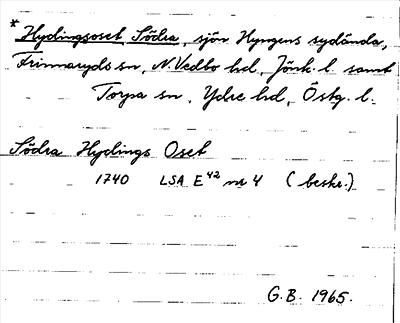 * Hydingsoset, Södra, sjön Hyngens sydända,
Frinnaryds sn, N. Vedbo hd, Jönk. l. samt
Torpa sn, Ydre hd, Östg. l.
Södra Hydings Oset
1740 LSA E⁴² nr 4 (beskr.)
G.B. 1965.